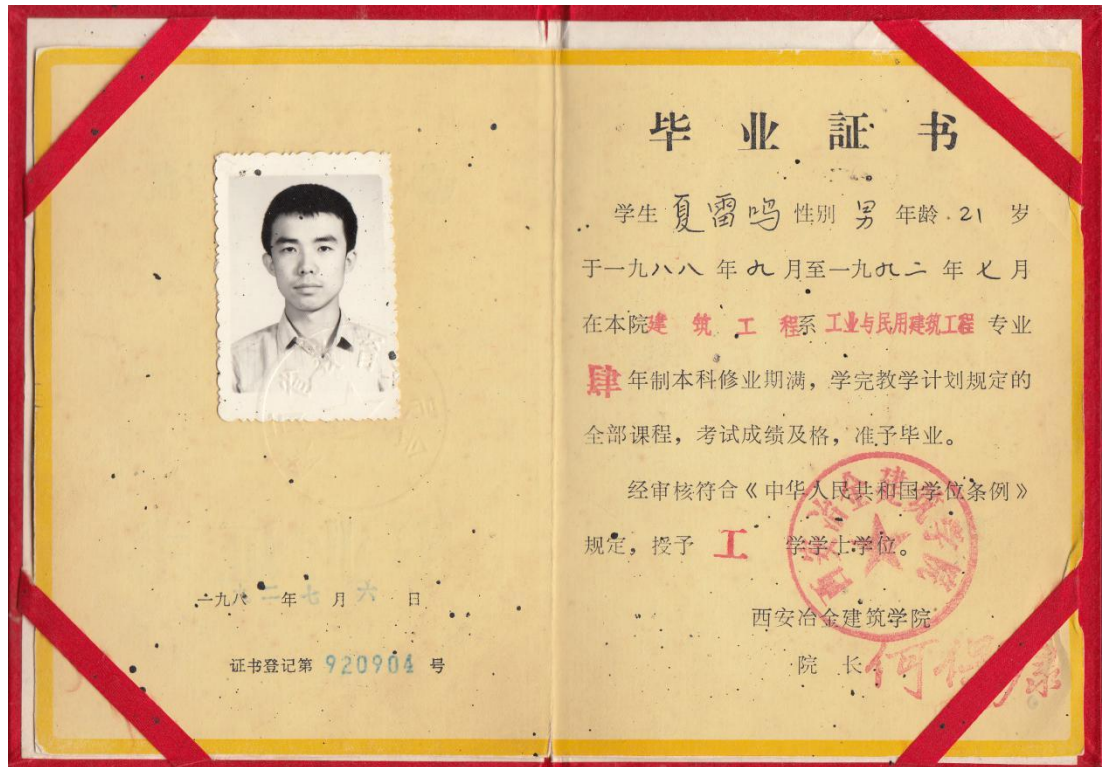 一九八 二 年 七 月 六 日
证书登记第 920904 号
毕业証书
学生 夏雷鸣 性别 男 年龄 21 岁
于一九八八 年 九 月至一九九二 年 七 月
在本院建筑工程系 工业与民用建筑工程 专业
肆 年制本科修业期满，学完教学计划规定的
全部课程，考试成绩及格，准予毕业。
经审核符合《中华人民共和国学位条例》
规定，授予 工 学学士学位。
西安冶金建筑学院
西安冶金建筑学院
院 长 何保康